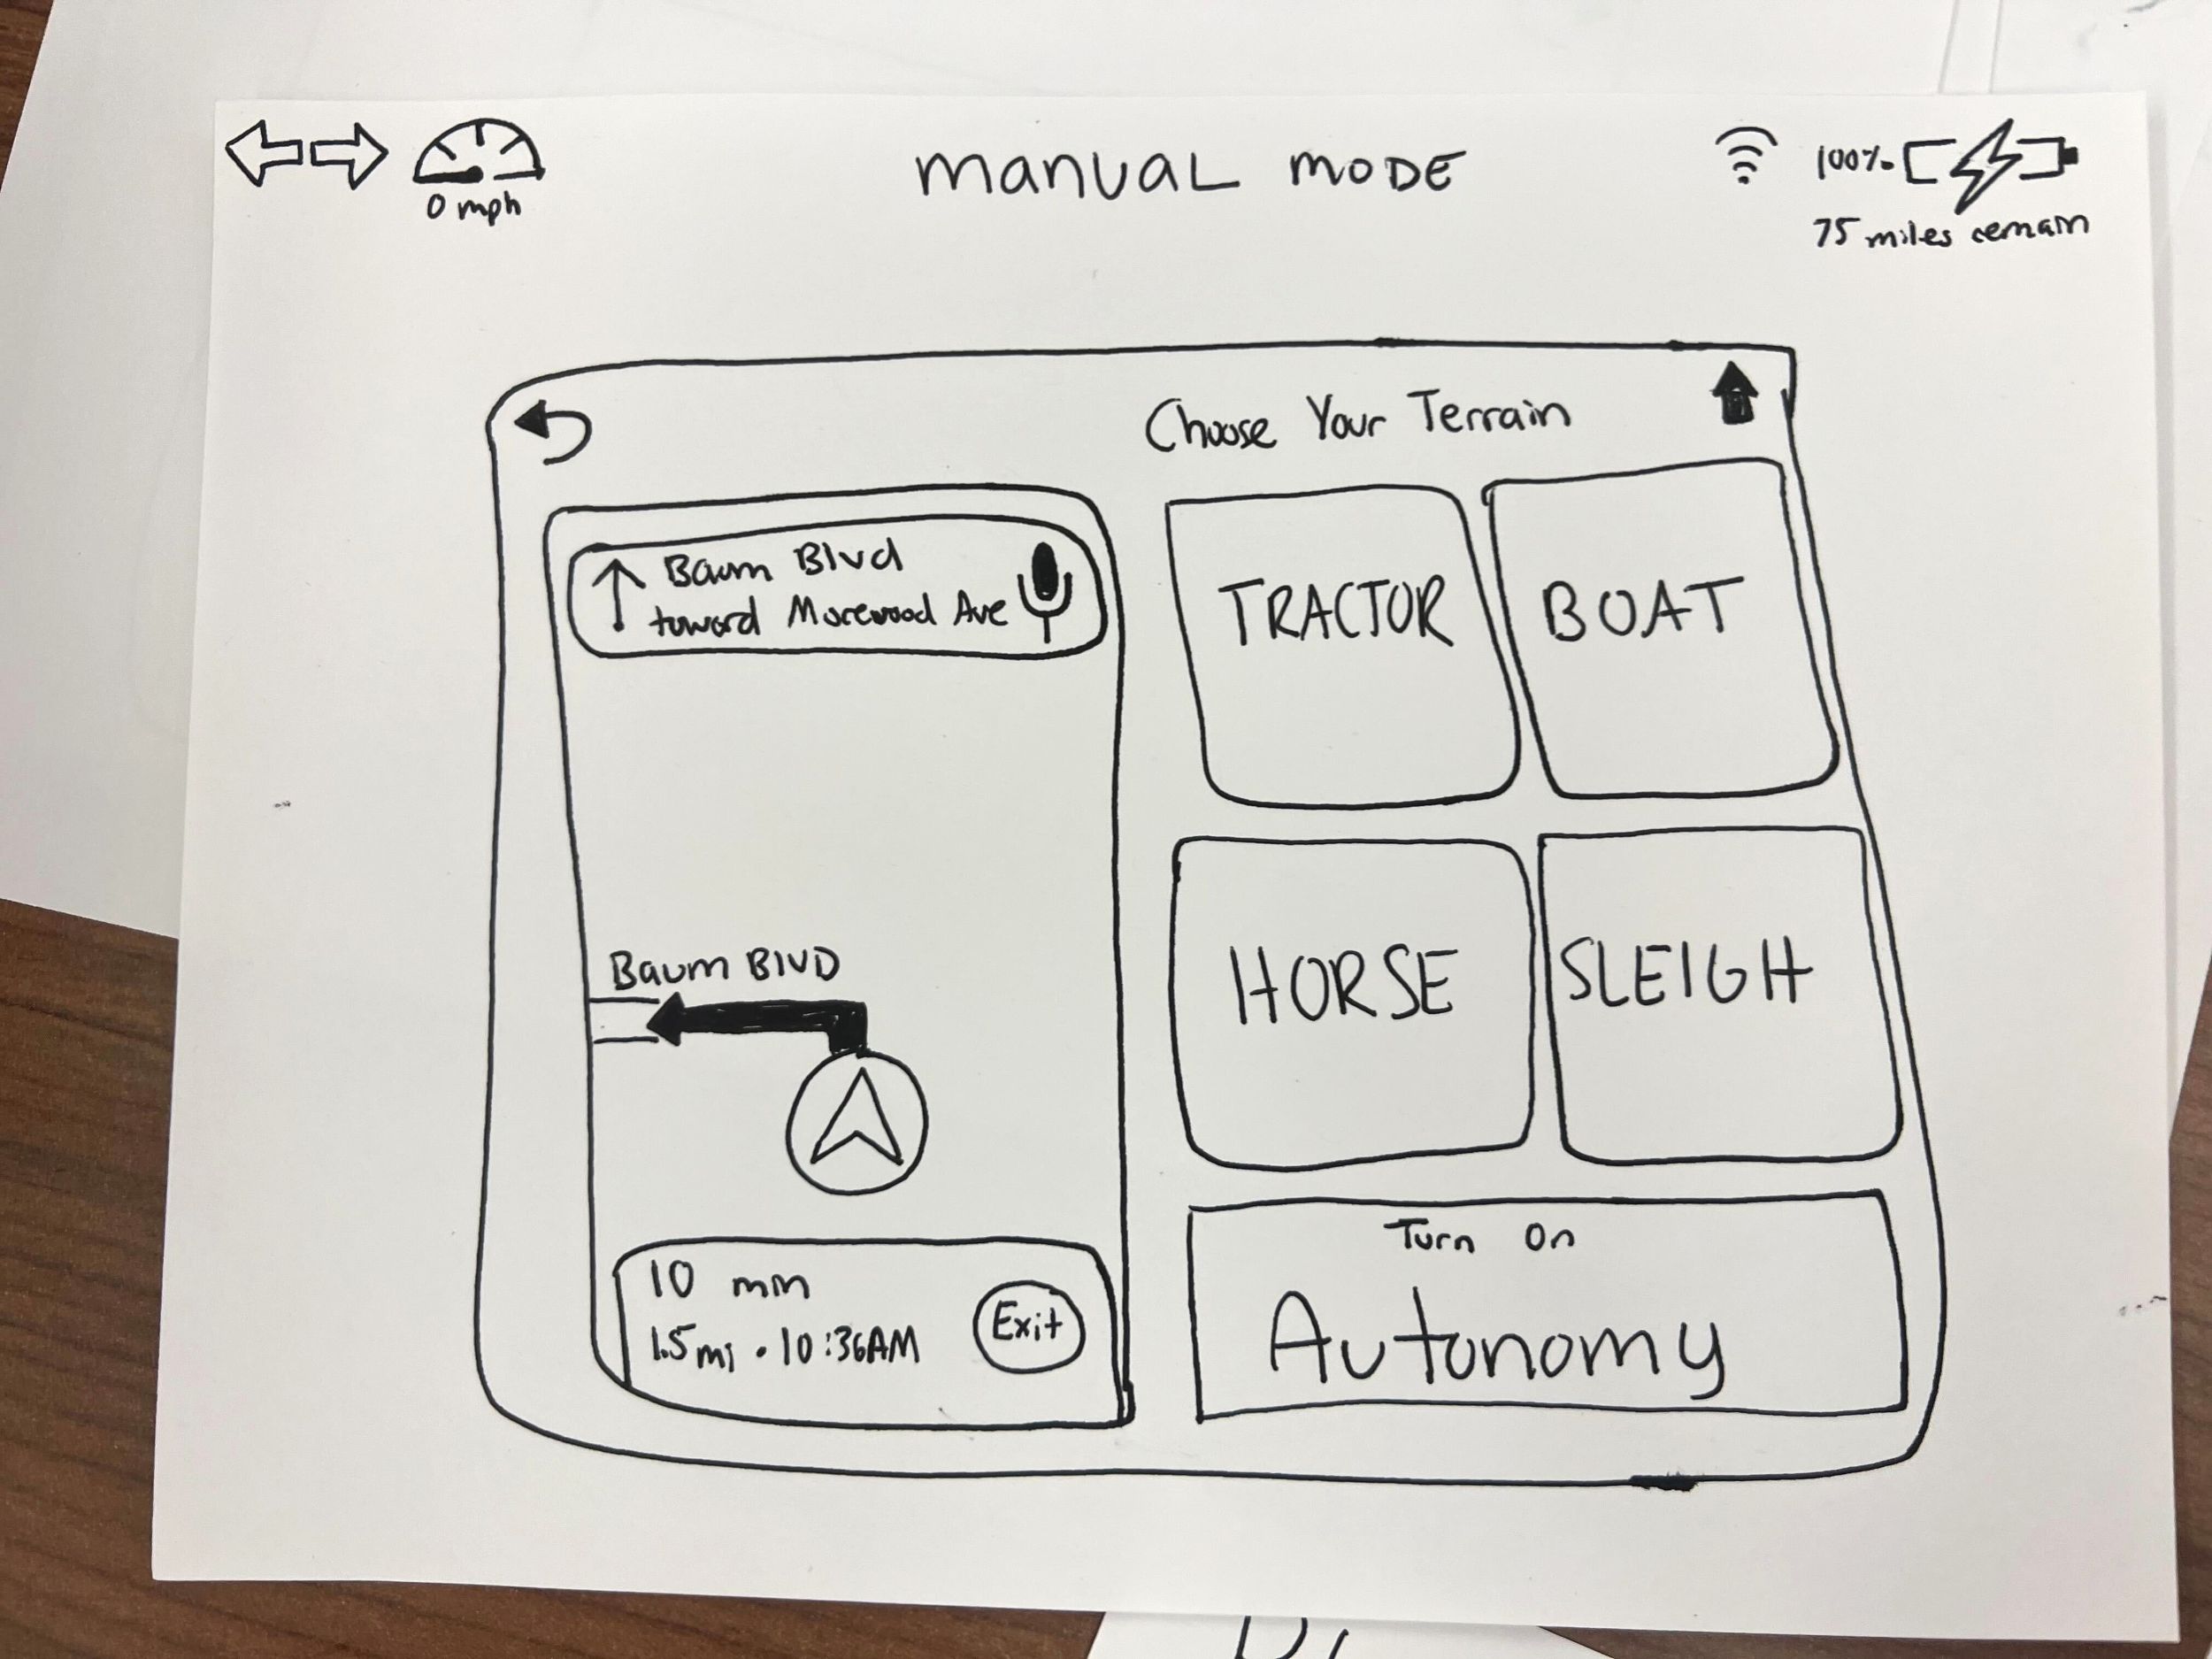 0 mph
MANUAL MODE
100%
75 miles remain
Choose Your Terrain
Baum Blvd
toward Morewood Ave
TRACTOR
BOAT
Baum BLVD
HORSE
SLEIGH
10 min
1.5 mi • 10:36AM
Exit
Turn On
Autonomy